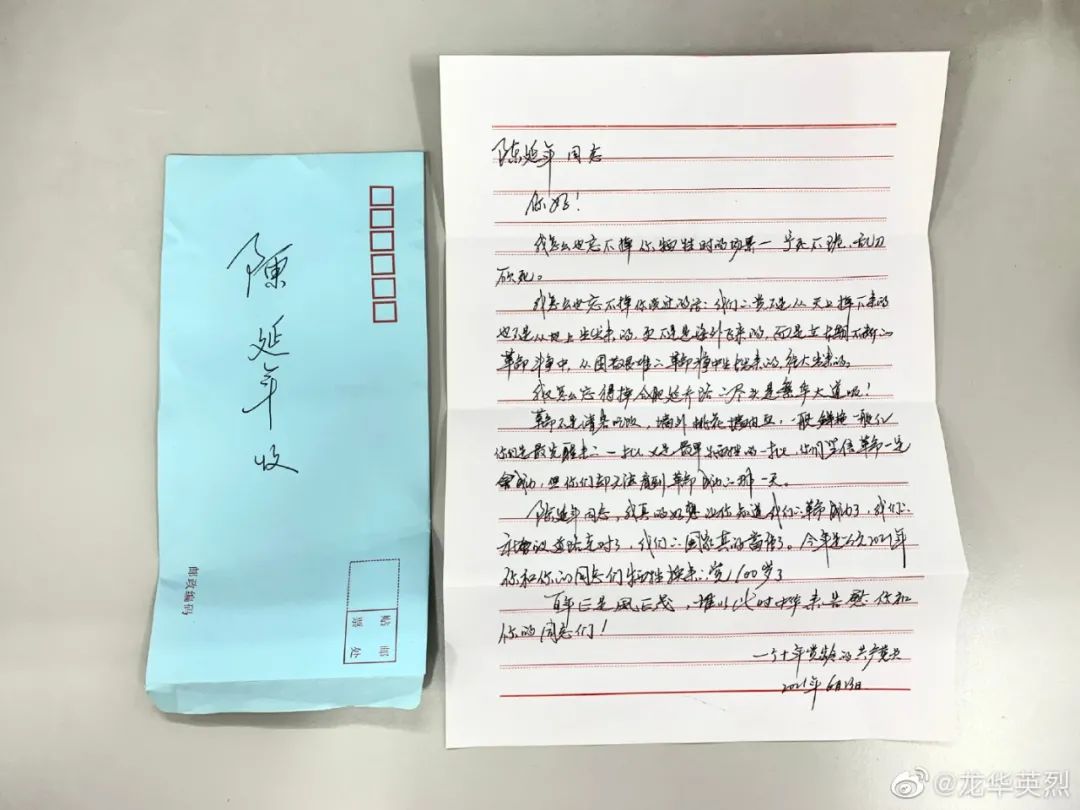 陈延年收
邮政编码
贴邮
票处
陈延年同志
你好！
我怎么也忘不掉你牺牲时的场景一宁死不跪，乱刀
砍死。
我怎么也忘不掉你说过的话：我们的党不是从天上掉下来的
也不是从地上生出来的，更不是从海外飞来的，而是在长期不断的
革命斗争中，从困苦艰难的革命斗争中生长出来的，强大出来的。
我又怎么忘得掉合肥延乔路的尽头是繁华大道呢！
革命不是请客吃饭，墙外桃花墙内血，一般鲜艳一般红
你们是最先醒来的一批，又是最早牺牲的一批，你们坚信革命一定
会成功，但你们却无法看到革命成功的那一天。
陈延年同志，我真的好想让你知道我们的革命成功了，我们的
道路走对了，我们的国家真的富强了。今年是公元2021年
你和你的同志们牺牲换来的党100岁了
百年正是风正茂，谨以此时中华来告慰你和
你的同志们！
一个十年党龄的共产党员
2021年6月13日
@龙华英烈